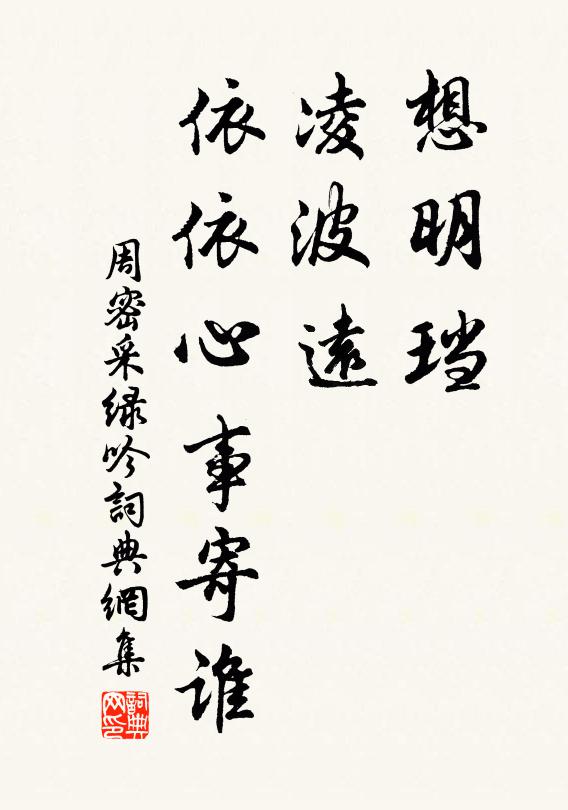 想明珰
凌波遠
依依心事寄谁
周密采绿吟詞典網集
詞典网印